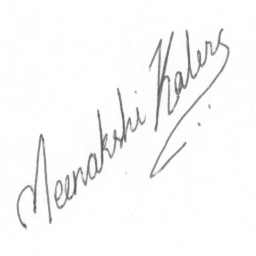 Meenakshi Kalera